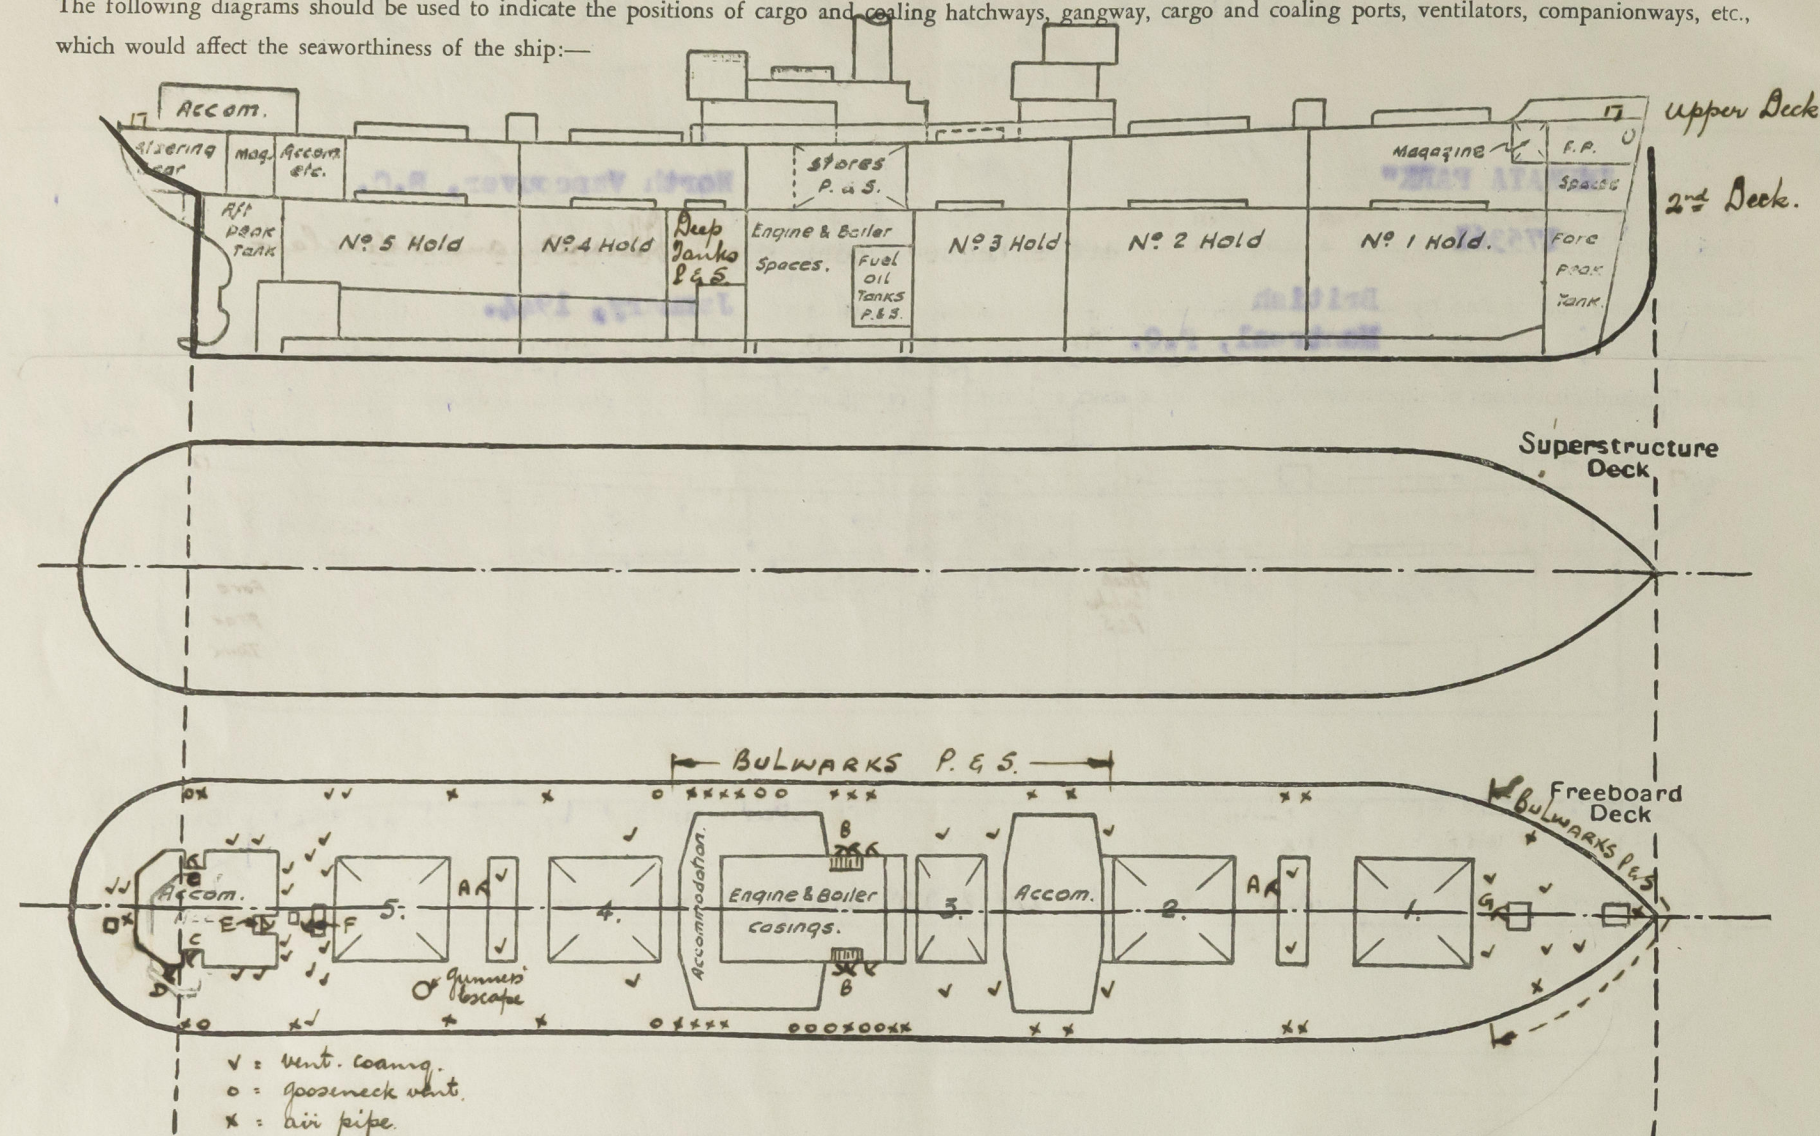 The following diagrams should be used to indicate the positions of cargo and coaling hatchways, gangway, cargo and coaling ports, ventilators, companionways, etc.,
which would affect the seaworthiness of the ship:—
Accom.
Upper Deck
Steering
Gear
Mag.
Accom.
etc.
Stores
P. & S.
Magazine
F.P.
Spaces
2nd Deck.
Aft
Peak
Tank
No 5 Hold
No 4 Hold
Deep
Tanks
P & S.
Engine & Boiler
Spaces.
Fuel
Oil
Tanks
P.& S.
No 3 Hold
No 2 Hold
No 1 Hold.
Fore
Peak
Tank.
Superstructure
Deck
BULWARKS P. & S.
Freeboard
Deck
BULWARKS P & S
Accom.
E
F
C
D
5.
A
4.
Accommodation.
Engine & Boiler
Casings.
B
B
3.
Accom.
2.
A
1.
G
Gunners'
Escape
v = vent. coamg.
o = gooseneck vent.
x = air pipe.